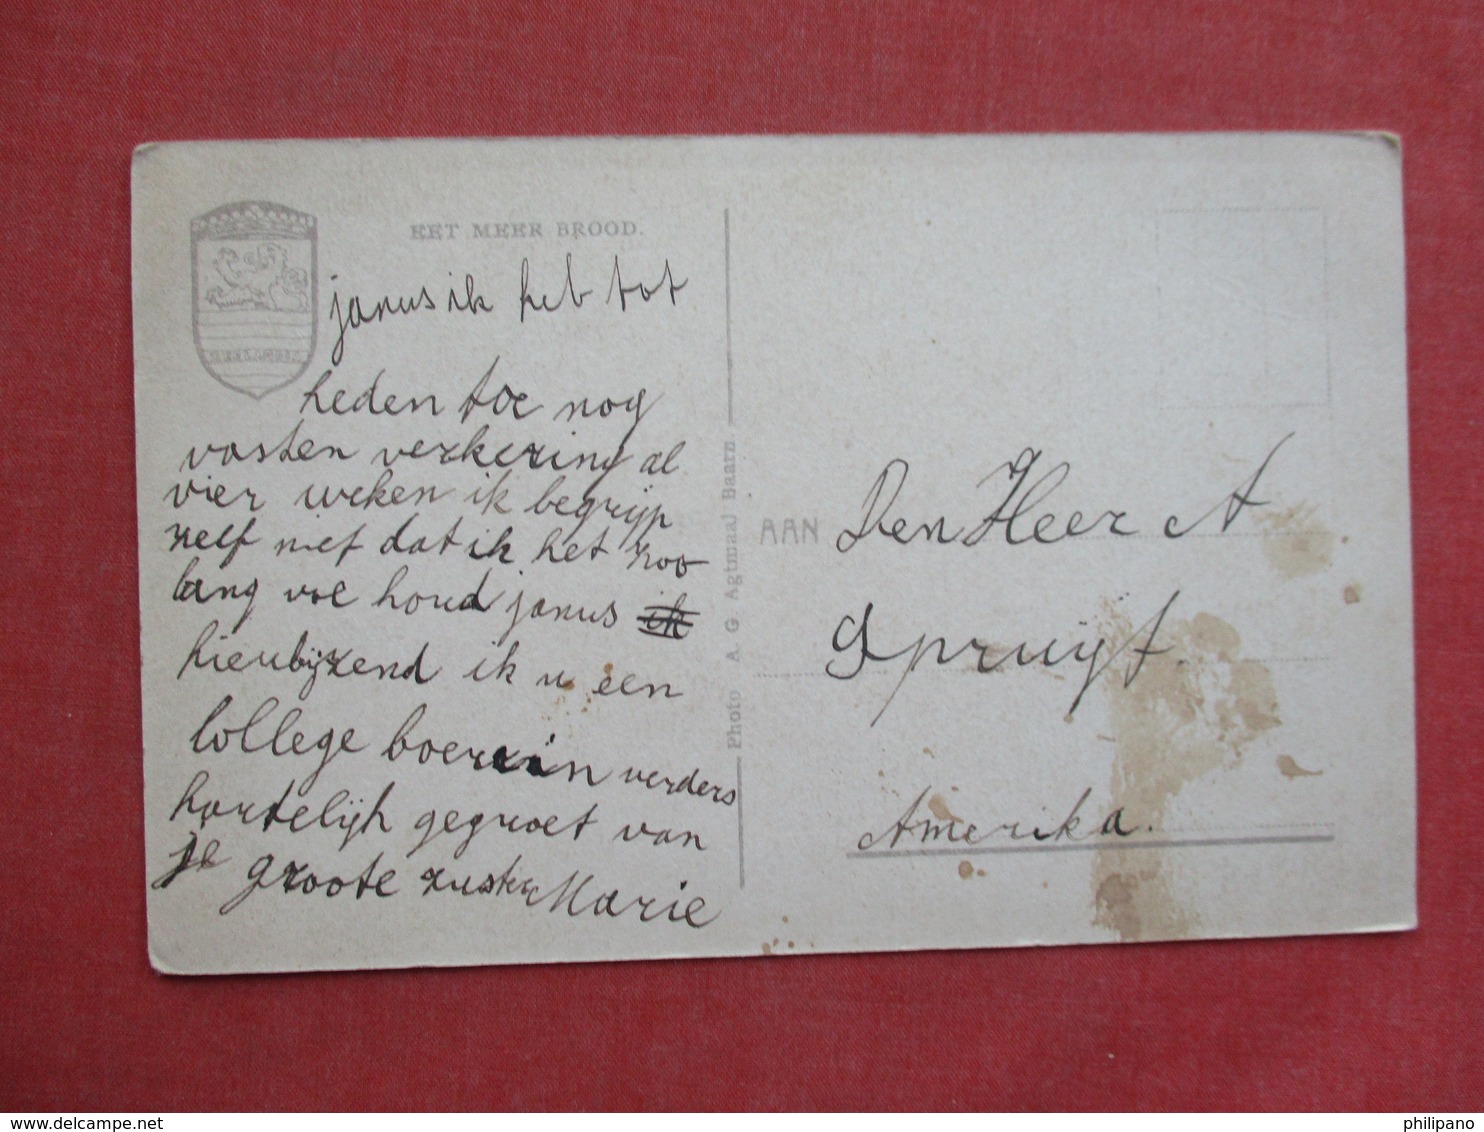 EET MEER BROOD.
janus ik heb tot
heden toe nog
vasten verkering al
vier weken ik begrijp
zelf niet dat ik het zoo
lang vol houd janus
hieubijzend ik u een
lollege boerin verders
hartelijk gegroet van
je groote zuster Marie
Photo A. G. Agtmaal Baarn.
AAN Den Heer A
Spruijt.
Amerika.
www.delcampe.net
philipano